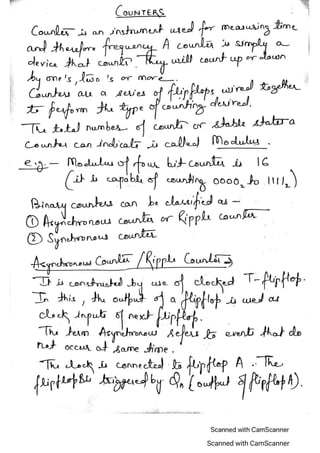 COUNTERS
Counter is an instrument used for measuring time
and therefore frequency. A counter is simply a
device that counts. They will count up or down
by one's, two's or more.
Counters are a series of flipflops wired together
to perform the type of counting desired.
The total number of counts or stable states a
Counter can indicate is called Modulus.
e.g. - Modulus of four bit counter is 16
(it is capable of counting 0000₂ to 1111₂)
Binary counters can be classified as -
① Asynchronous counter or Ripple counter
② Synchronous counter
Asynchronous Counter / Ripple Counter →
It is constructed by use of clocked T-flipflop.
In this, the output of a flipflop is used as
clock inputs of next flipflop.
The term Asynchronous refers to events that do
not occur at same time.
The clock is connected to flipflop A. The
flipflop B is triggered by (output of flipflop A).
Scanned with CamScanner
Scanned with CamScanner